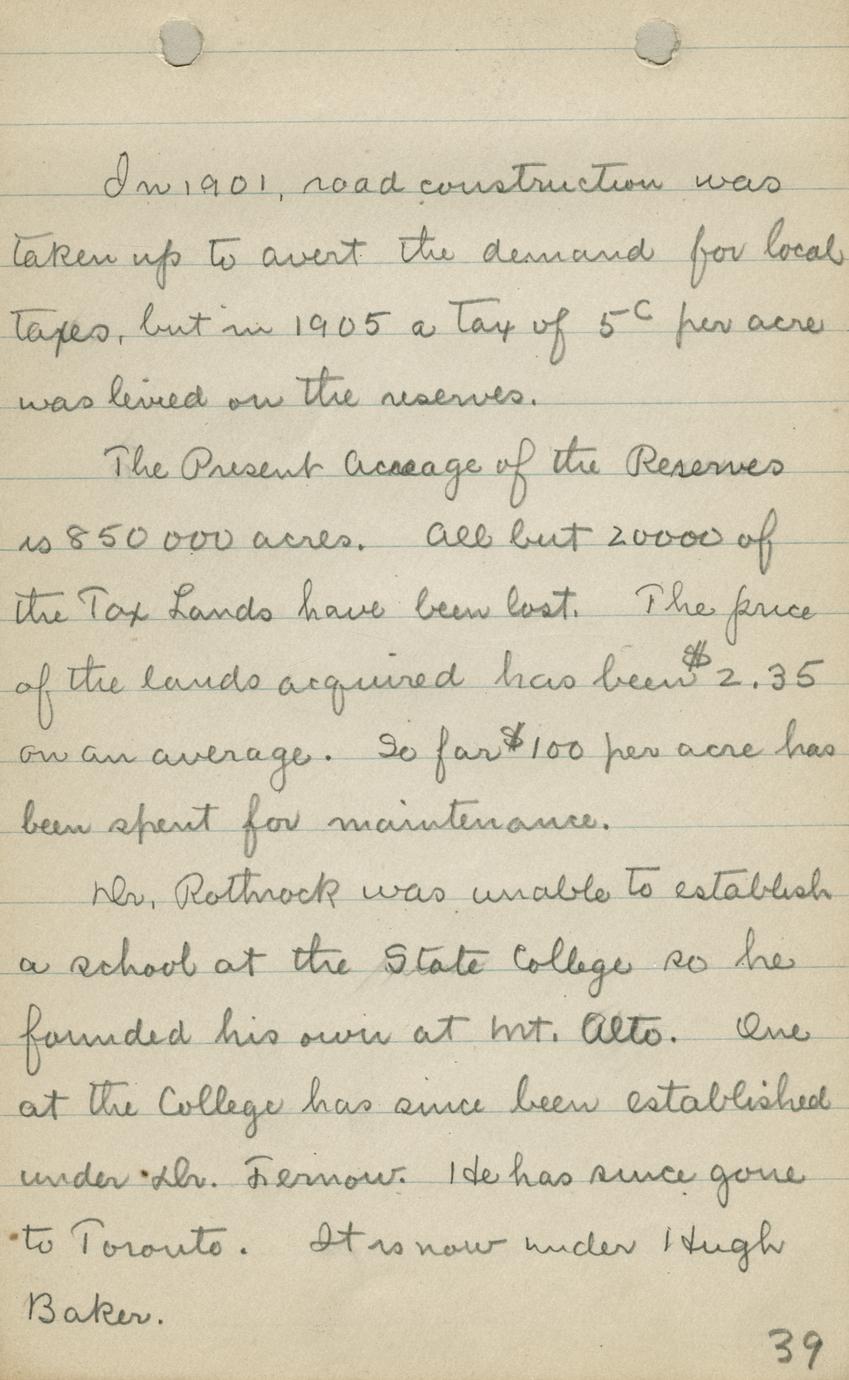 In 1901, road construction was
taken up to avert the demand for local
taxes, but in 1905 a tax of 5c per acre
was levied on the reserves.
The Present Acreage of the Reserves
is 850 000 acres. All but 20000 of
the Tax Lands have been lost. The price
of the lands acquired has been $2.35
on an average. So far $100 per acre has
been spent for maintenance.
Dr. Rothrock was unable to establish
a school at the State College so he
founded his own at Mt. Alto. One
at the College has since been established
under Dr. Fernow. He has since gone
to Toronto. It is now under Hugh
Baker.
39